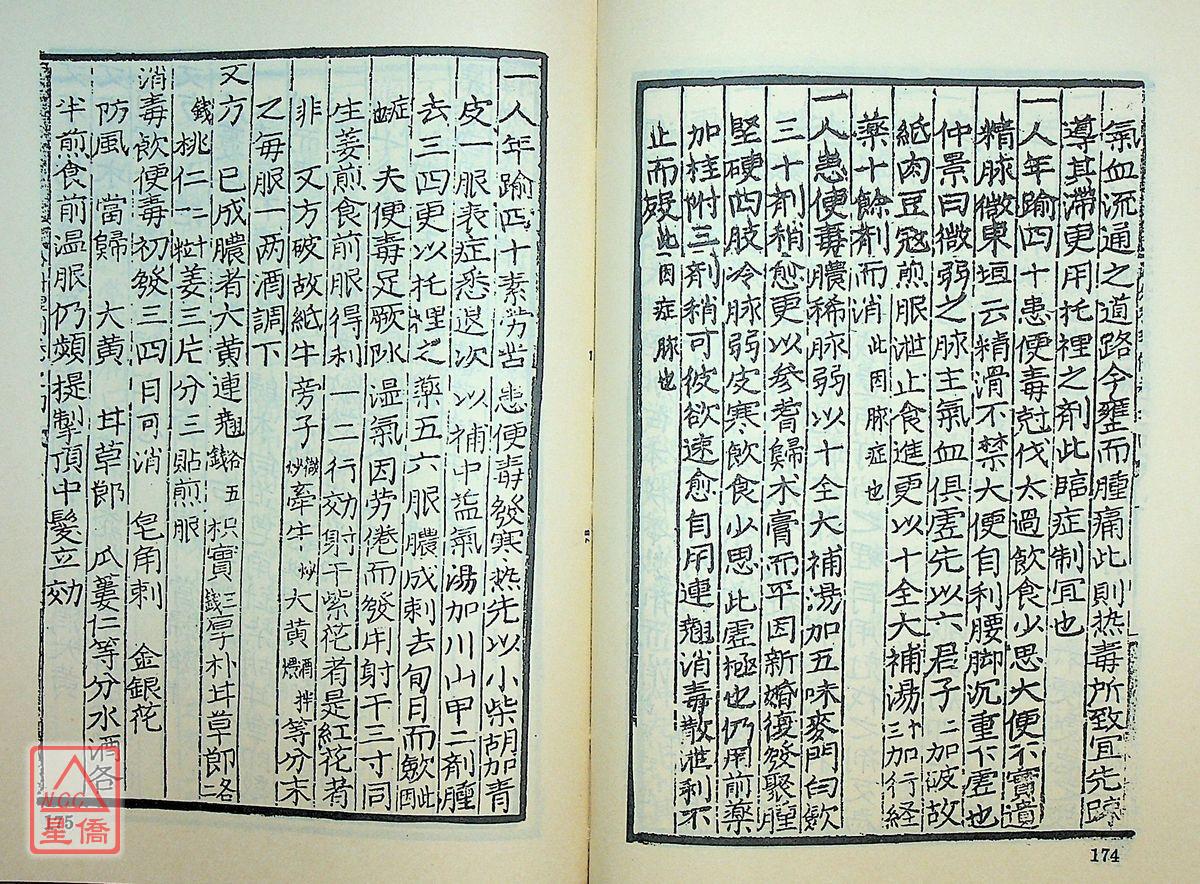 氣血流通之道路今壅而腫痛此則热毒所致宜先踈
導其滯更用托裡之剤此臨症制冝也
一人年踰四十患便毒尅伐太過飮食少思大便不實遺
精脉微東垣云精滑不禁大便自利腰脚沉重下虛也
仲景曰微弱之脉主氣血俱虛先以六君子二加破故
紙肉豆寇煎服泄止食進更以十全大補湯三十加行経
薬十餘剤而消此因脉症也
一人患便毒膿稀脉弱以十全大補湯加五味麥門白歛
三十剤稍愈更以参耆歸术膏而平因新婚復發聚腫
堅硬四肢冷脉弱皮寒飮食少思此虛極也仍用前薬
加桂附三剤稍可彼欲速愈自用連翹消毒散泄利不
止而殁此因症脉也
174
一人年踰四十素劳苦患便毒發寒热先以小柴胡加青
皮一服表症悉退次以補中益氣湯加川山甲二剤腫
去三四更以托裡之薬五六服膿成刺去旬日而歛此因
症也 夫便毒足厥阴湿氣因劳倦而發用射干三寸同
生姜煎食前服得利一二行効射干紫花者是紅花者
非 又方破故紙牛旁子微炒牽牛炒大黄酒拌煨等分末
之每服一两酒調下
又方 已成膿者大黄連翹各五錢枳實三錢厚朴甘草節各二
錢桃仁二十一粒姜三片分三貼煎服
消毒飮便毒初發三四日可消 皂角刺 金銀花
防風 當歸 大黄 甘草節 瓜蔞仁等分水酒各
半煎食前温服仍頻提掣頂中髮立効
175
NCC
星僑